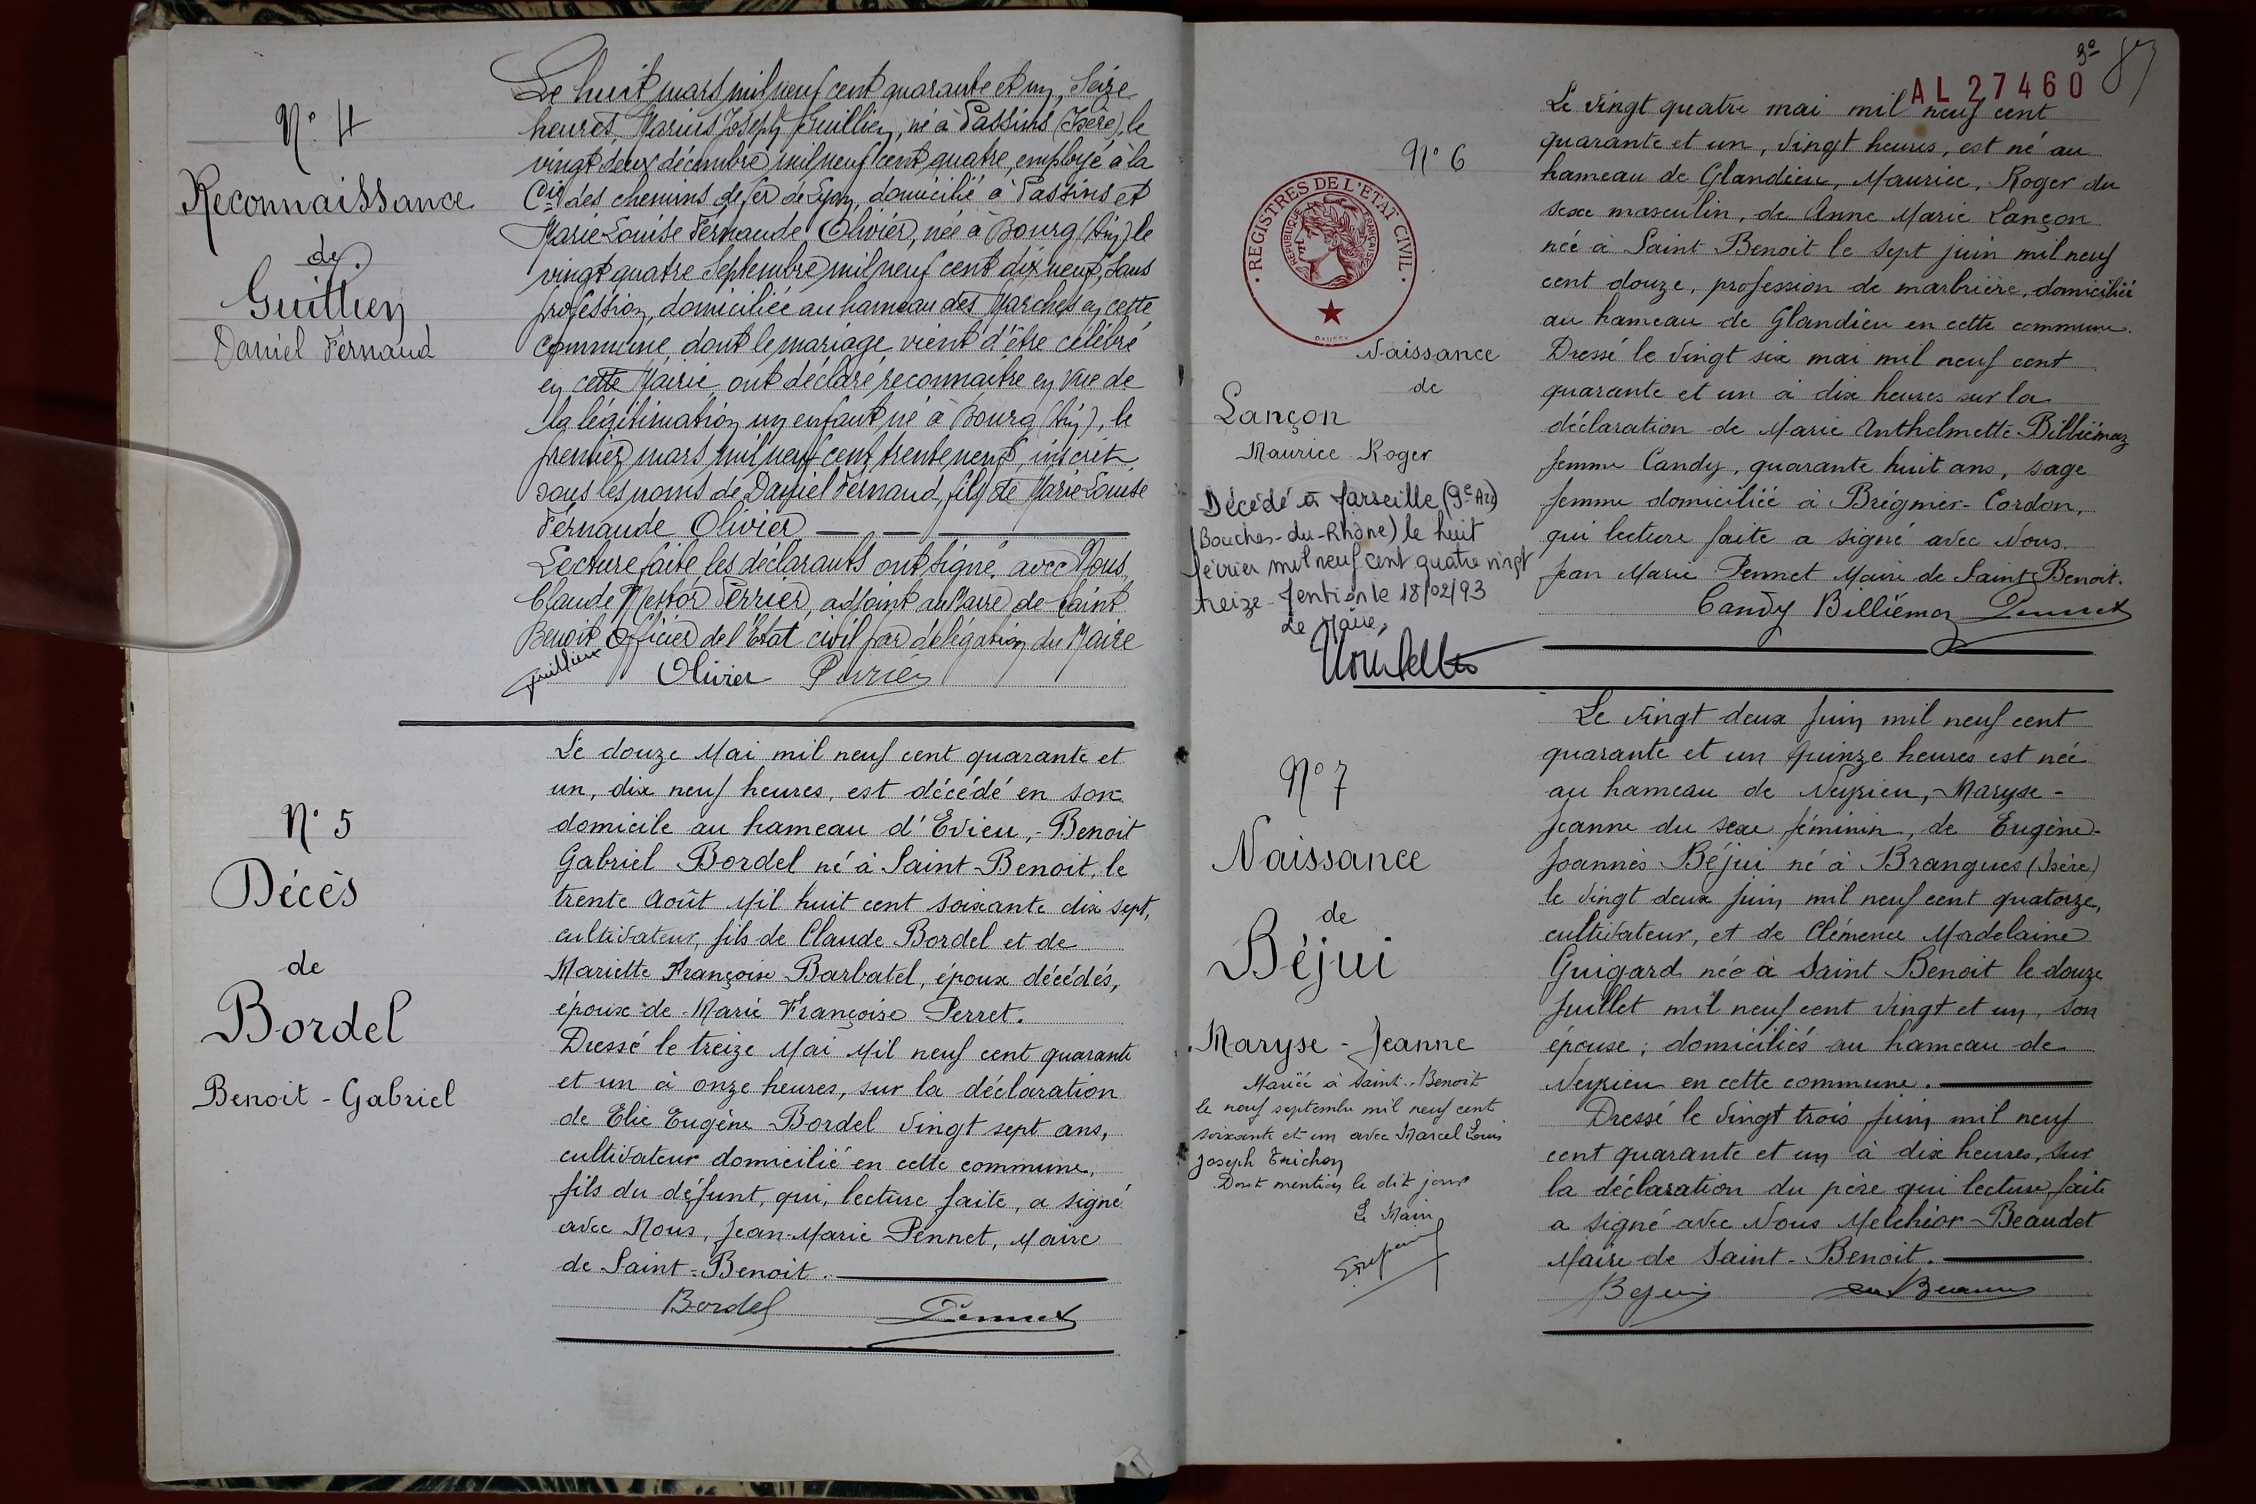 N° 4
Reconnaissance
de
Guillien
Daniel Fernand
Le huit mars mil neuf cent quarante et un, seize
heures, Marius Joseph Guillien, né à Passins (Isère), le
vingt deux décembre mil neuf cent quatre, employé à la
Cie des chemins de fer de Lyon, domicilié à Passins et
Marie Louise Fernande Olivier, née à Bourg (Ain) le
vingt quatre Septembre mil neuf cent dix neuf, sans
profession, domiciliée au hameau des Marches en cette
commune, dont le mariage vient d'être célébré
en cette Mairie, ont déclaré reconnaître en vue de
la légitimation un enfant né à Bourg (Ain), le
premier mars mil neuf cent trente neuf, inscrit
sous les noms de Daniel Fernand, fils de Marie Louise
Fernande Olivier
Lecture faite les déclarants ont signé avec Nous
Claude Nestor Perrier, adjoint au Maire de Saint
Benoit Officier de l'Etat civil par délégation du Maire
Guillien Olivier Perrier
N° 5
Décès
de
Bordel
Benoit - Gabriel
Le douze Mai mil neuf cent quarante et
un, dix neuf heures, est décédé en son
domicile au hameau d'Evieu, - Benoit
Gabriel Bordel né à Saint-Benoit, le
trente Août Mil huit cent soixante dix sept,
cultivateur, fils de Claude Bordel et de
Mariette Françoise Barbatel, époux décédés,
époux de Marie Françoise Perret.
Dressé le treize Mai Mil neuf cent quarante
et un à onze heures, sur la déclaration
de Elie Eugène Bordel vingt sept ans,
cultivateur domicilié en cette commune,
fils du défunt, qui, lecture faite, a signé
avec Nous, Jean-Marie Pennet, Maire
de Saint-Benoit.
Bordel Pennet
9°
87
AL 27460
N° 6
REGISTRES DE L'ETAT CIVIL
REPUBLIQUE FRANÇAISE
Naissance
de
Lançon
Maurice Roger
Décédé à Marseille (9e Ar)
(Bouches-du-Rhône) le huit
février mil neuf cent quatre vingt
treize - Mention le 18/02/93
Le Maire,
Le vingt quatre mai mil neuf cent
quarante et un, vingt heures, est né au
hameau de Glandieu, Maurice, Roger du
sexe masculin, de Anne Marie Lançon
née à Saint Benoit le sept juin mil neuf
cent douze, profession de marbrière, domiciliée
au hameau de Glandieu en cette commune.
Dressé le vingt six mai mil neuf cent
quarante et un à dix heures sur la
déclaration de Marie Anthelmette Billiémaz
femme Candy, quarante huit ans, sage
femme domiciliée à Brégnier-Cordon,
qui lecture faite a signé avec Nous.
Jean Marie Pennet Maire de Saint-Benoit.
Candy Billiémaz Pennet
N° 7
Naissance
de
Béjui
Maryse - Jeanne
Mariée à Saint-Benoit
le neuf septembre mil neuf cent
soixante et un avec Marcel Louis
Joseph Trichon
Dont mention le dit jour
Le Maire
Le vingt deux juin mil neuf cent
quarante et un quinze heures est née
au hameau de Neyrieu, - Maryse -
Jeanne du sexe féminin, de Eugène -
Joannès Béjui né à Brangues (Isère)
le vingt deux juin mil neuf cent quatorze,
cultivateur, et de Clémence Madelaine
Guigard née à Saint Benoit le douze
Juillet mil neuf cent vingt et un, son
épouse ; domiciliés au hameau de
Neyrieu en cette commune.
Dressé le vingt trois juin mil neuf
cent quarante et un à dix heures, sur
la déclaration du père qui lecture faite
a signé avec Nous Melchior-Beaudet
Maire de Saint-Benoit.
Bejui